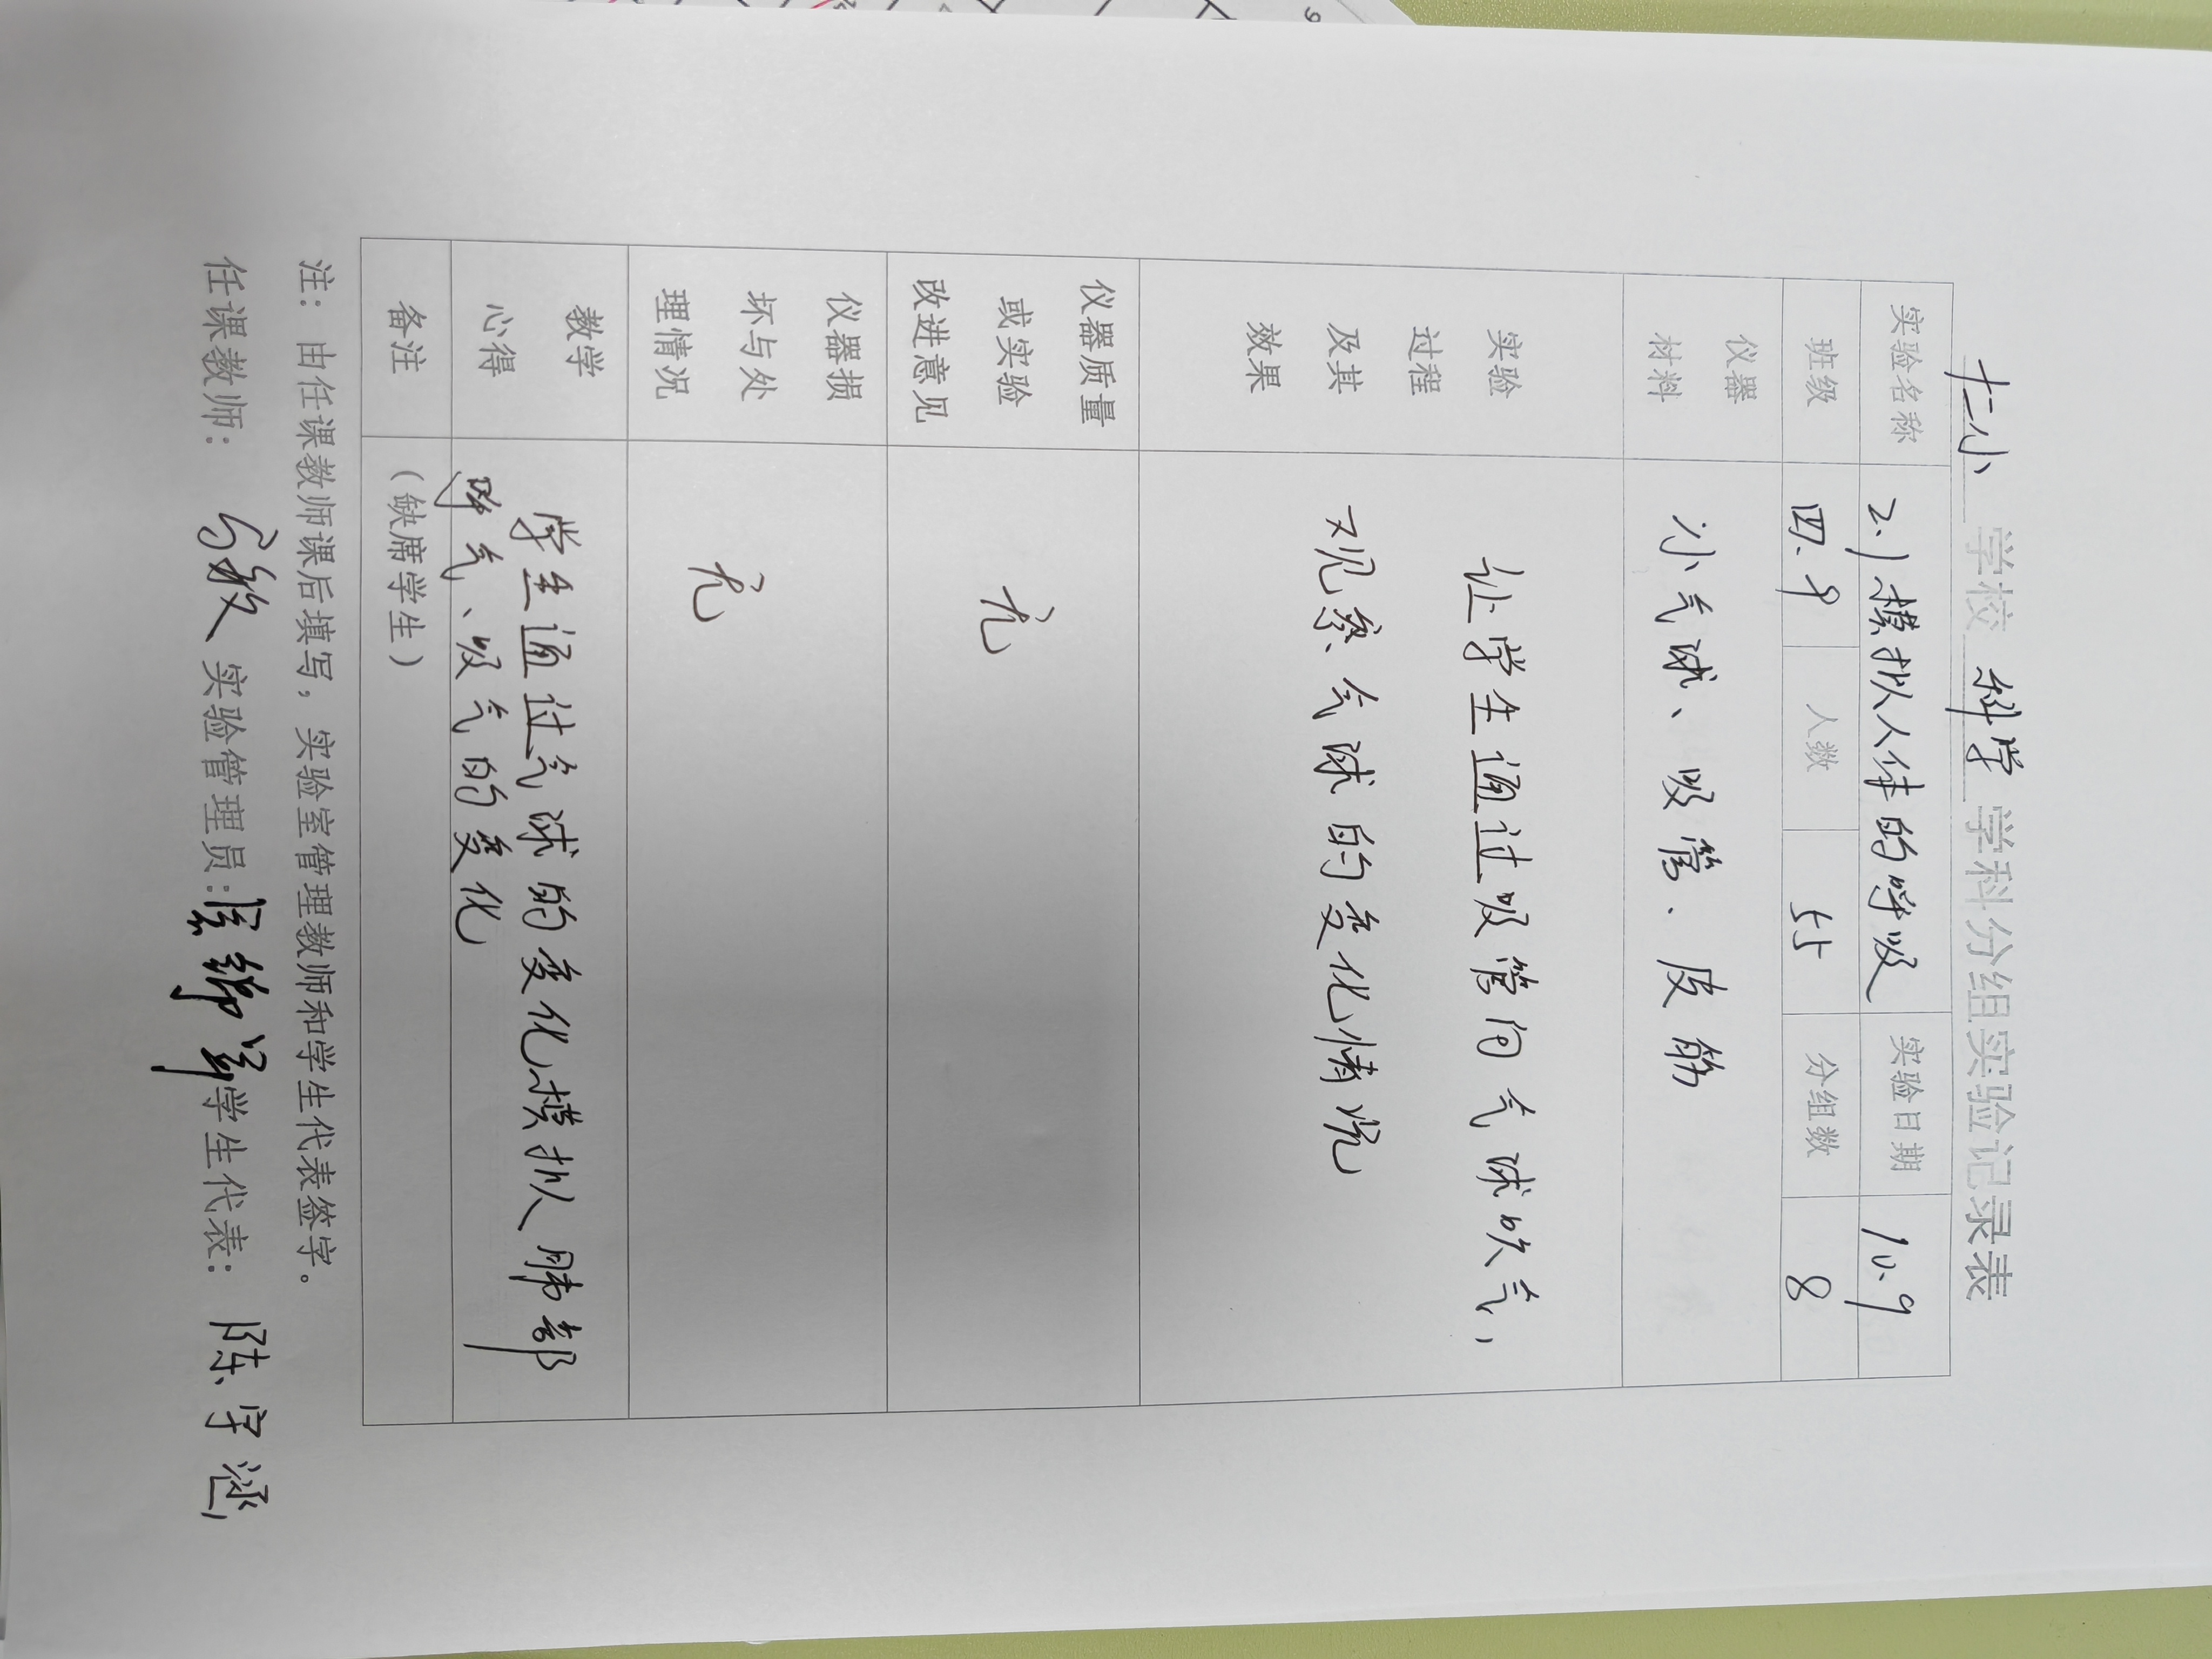 十二小 学校 科学 学科分组实验记录表
实验名称 2.1模拟人体的呼吸 实验日期 10.9
班级 四.9 人数 55 分组数 8
仪器
材料
小气球、吸管、皮筋
实验
过程
及其
效果
让学生通过吸管向气球吹气,
观察气球的变化情况
仪器质量
或实验
改进意见
无
仪器损
坏与处
理情况
无
教学
心得
学生通过气球的变化模拟人肺部
呼气、吸气的变化
备注 (缺席学生)
注: 由任课教师课后填写, 实验室管理教师和学生代表签字。
任课教师: 实验管理员: 学生代表: 陈宇涵